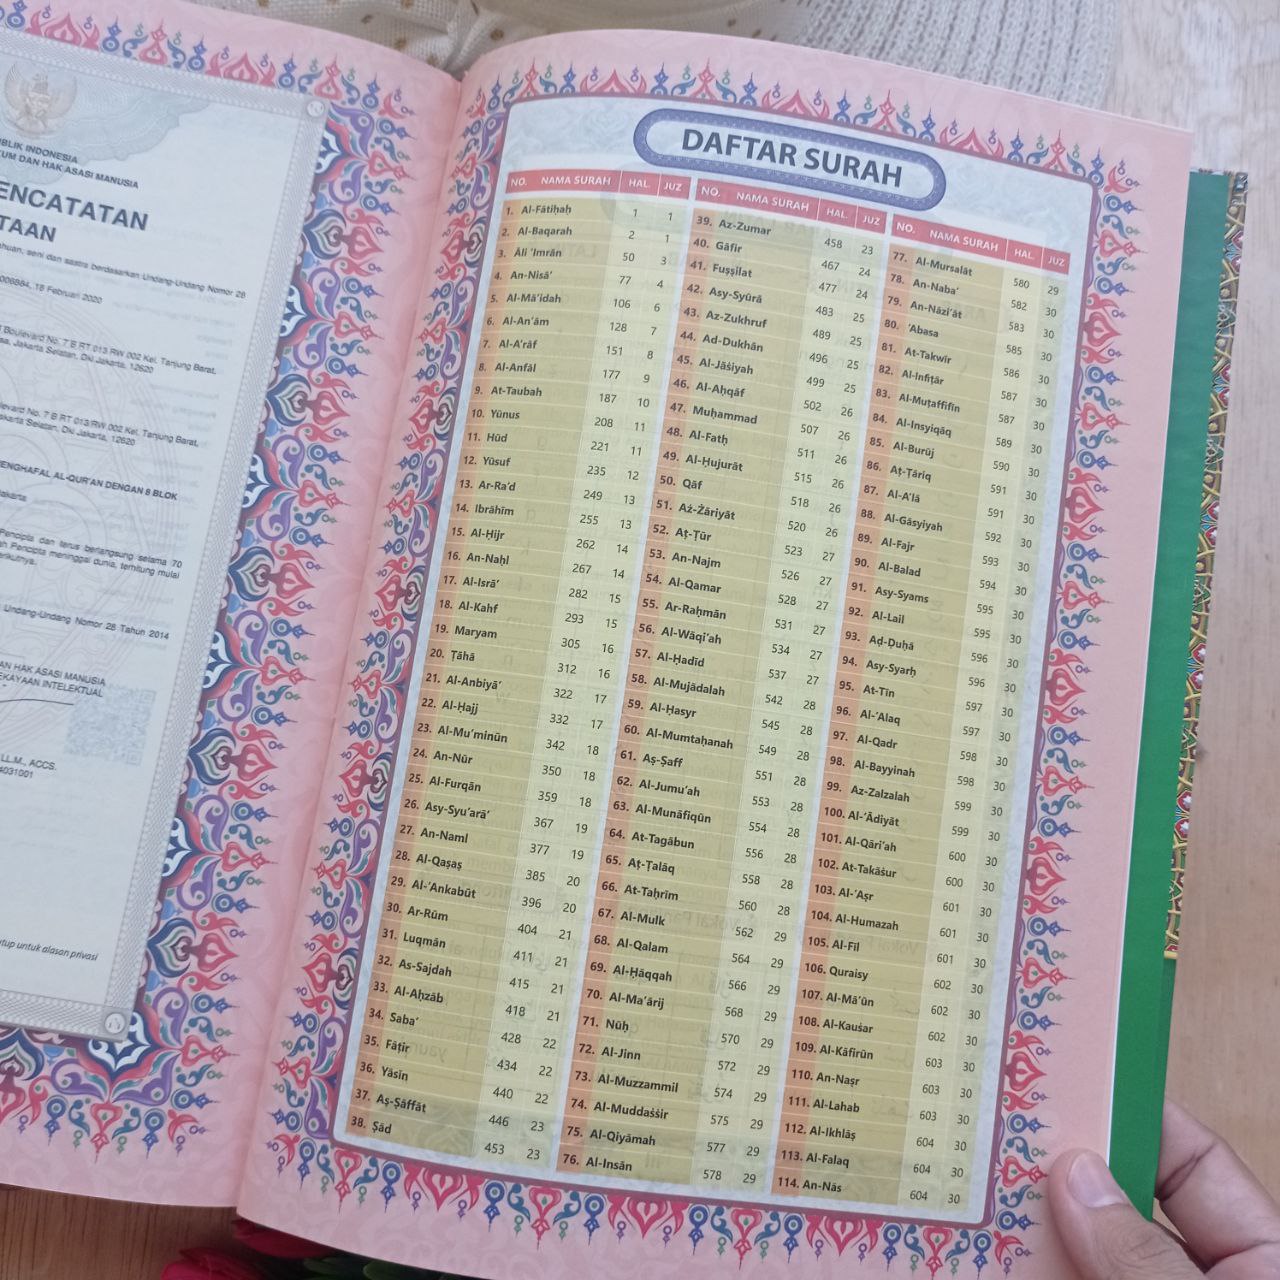 BLIK INDONESIA
KUM DAN HAK ASASI MANUSIA
ENCATATAN
TAAN
seni dan sastra berdasarkan Undang-Undang Nomor 28
18 Februari 2020
Boulevard No. 7 B RT 013 RW 002 Kel. Tanjung Barat,
Jakarta Selatan, Dki Jakarta, 12620
No. 7 B RT 013 RW 002 Kel. Tanjung Barat,
Jakarta Selatan, Dki Jakarta, 12620
ENGHAFAL AL-QUR'AN DENGAN 8 BLOK
Pencipta dan terus berlangsung selama 70
Pencipta meninggal dunia, terhitung mulai
Undang-Undang Nomor 28 Tahun 2014
AN HAK ASASI MANUSIA
EKAYAAN INTELEKTUAL
LL.M., ACCS.
4031001
untuk alasan privasi
DAFTAR SURAH
NO. NAMA SURAH HAL. JUZ
1. Al-Fātiḥaḥ 1 1
2. Al-Baqarah 2 1
3. Āli ‘Imrān 50 3
4. An-Nisā’ 77 4
5. Al-Mā’idah 106 6
6. Al-An’ām 128 7
7. Al-A’rāf 151 8
8. Al-Anfāl 177 9
9. At-Taubah 187 10
10. Yūnus 208 11
11. Hūd 221 11
12. Yūsuf 235 12
13. Ar-Ra’d 249 13
14. Ibrāhīm 255 13
15. Al-Ḥijr 262 14
16. An-Naḥl 267 14
17. Al-Isrā’ 282 15
18. Al-Kahf 293 15
19. Maryam 305 16
20. Ṭāhā 312 16
21. Al-Anbiyā’ 322 17
22. Al-Ḥajj 332 17
23. Al-Mu’minūn 342 18
24. An-Nūr 350 18
25. Al-Furqān 359 18
26. Asy-Syu’arā’ 367 19
27. An-Naml 377 19
28. Al-Qaṣaṣ 385 20
29. Al-’Ankabūt 396 20
30. Ar-Rūm 404 21
31. Luqmān 411 21
32. As-Sajdah 415 21
33. Al-Aḥzāb 418 21
34. Saba’ 428 22
35. Fāṭir 434 22
36. Yāsīn 440 22
37. Aṣ-Ṣāffāt 446 23
38. Ṣād 453 23
NO. NAMA SURAH HAL. JUZ
39. Az-Zumar 458 23
40. Gāfir 467 24
41. Fuṣṣilat 477 24
42. Asy-Syūrā 483 25
43. Az-Zukhruf 489 25
44. Ad-Dukhān 496 25
45. Al-Jāṡiyah 499 25
46. Al-Aḥqāf 502 26
47. Muḥammad 507 26
48. Al-Fatḥ 511 26
49. Al-Ḥujurāt 515 26
50. Qāf 518 26
51. Aż-Żāriyāt 520 26
52. Aṭ-Ṭūr 523 27
53. An-Najm 526 27
54. Al-Qamar 528 27
55. Ar-Raḥmān 531 27
56. Al-Wāqi’ah 534 27
57. Al-Ḥadīd 537 27
58. Al-Mujādalah 542 28
59. Al-Ḥasyr 545 28
60. Al-Mumtaḥanah 549 28
61. Aṣ-Ṣaff 551 28
62. Al-Jumu’ah 553 28
63. Al-Munāfiqūn 554 28
64. At-Tagābun 556 28
65. Aṭ-Ṭalāq 558 28
66. At-Taḥrīm 560 28
67. Al-Mulk 562 29
68. Al-Qalam 564 29
69. Al-Ḥāqqah 566 29
70. Al-Ma’ārij 568 29
71. Nūḥ 570 29
72. Al-Jinn 572 29
73. Al-Muzzammil 574 29
74. Al-Muddaṡṡir 575 29
75. Al-Qiyāmah 577 29
76. Al-Insān 578 29
NO. NAMA SURAH HAL. JUZ
77. Al-Mursalāt 580 29
78. An-Naba’ 582 30
79. An-Nāzi’āt 583 30
80. ’Abasa 585 30
81. At-Takwīr 586 30
82. Al-Infiṭār 587 30
83. Al-Muṭaffifīn 587 30
84. Al-Insyiqāq 589 30
85. Al-Burūj 590 30
86. Aṭ-Ṭāriq 591 30
87. Al-A’lā 591 30
88. Al-Gāsyiyah 592 30
89. Al-Fajr 593 30
90. Al-Balad 594 30
91. Asy-Syams 595 30
92. Al-Lail 595 30
93. Aḍ-Ḍuḥā 596 30
94. Asy-Syarḥ 596 30
95. At-Tīn 597 30
96. Al-’Alaq 597 30
97. Al-Qadr 598 30
98. Al-Bayyinah 598 30
99. Az-Zalzalah 599 30
100. Al-’Ādiyāt 599 30
101. Al-Qāri’ah 600 30
102. At-Takāṡur 600 30
103. Al-’Aṣr 601 30
104. Al-Humazah 601 30
105. Al-Fīl 601 30
106. Quraisy 602 30
107. Al-Mā’ūn 602 30
108. Al-Kauṡar 602 30
109. Al-Kāfirūn 603 30
110. An-Naṣr 603 30
111. Al-Lahab 603 30
112. Al-Ikhlāṣ 604 30
113. Al-Falaq 604 30
114. An-Nās 604 30